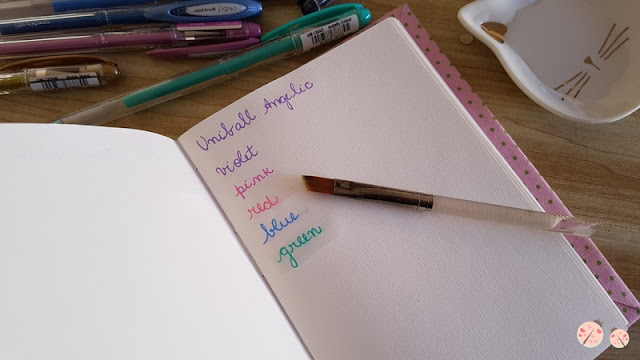 Uniball Angelic
violet
pink
red
blue
green